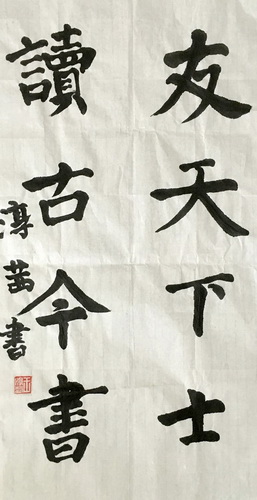 友天下士
讀古今書
淳茜書